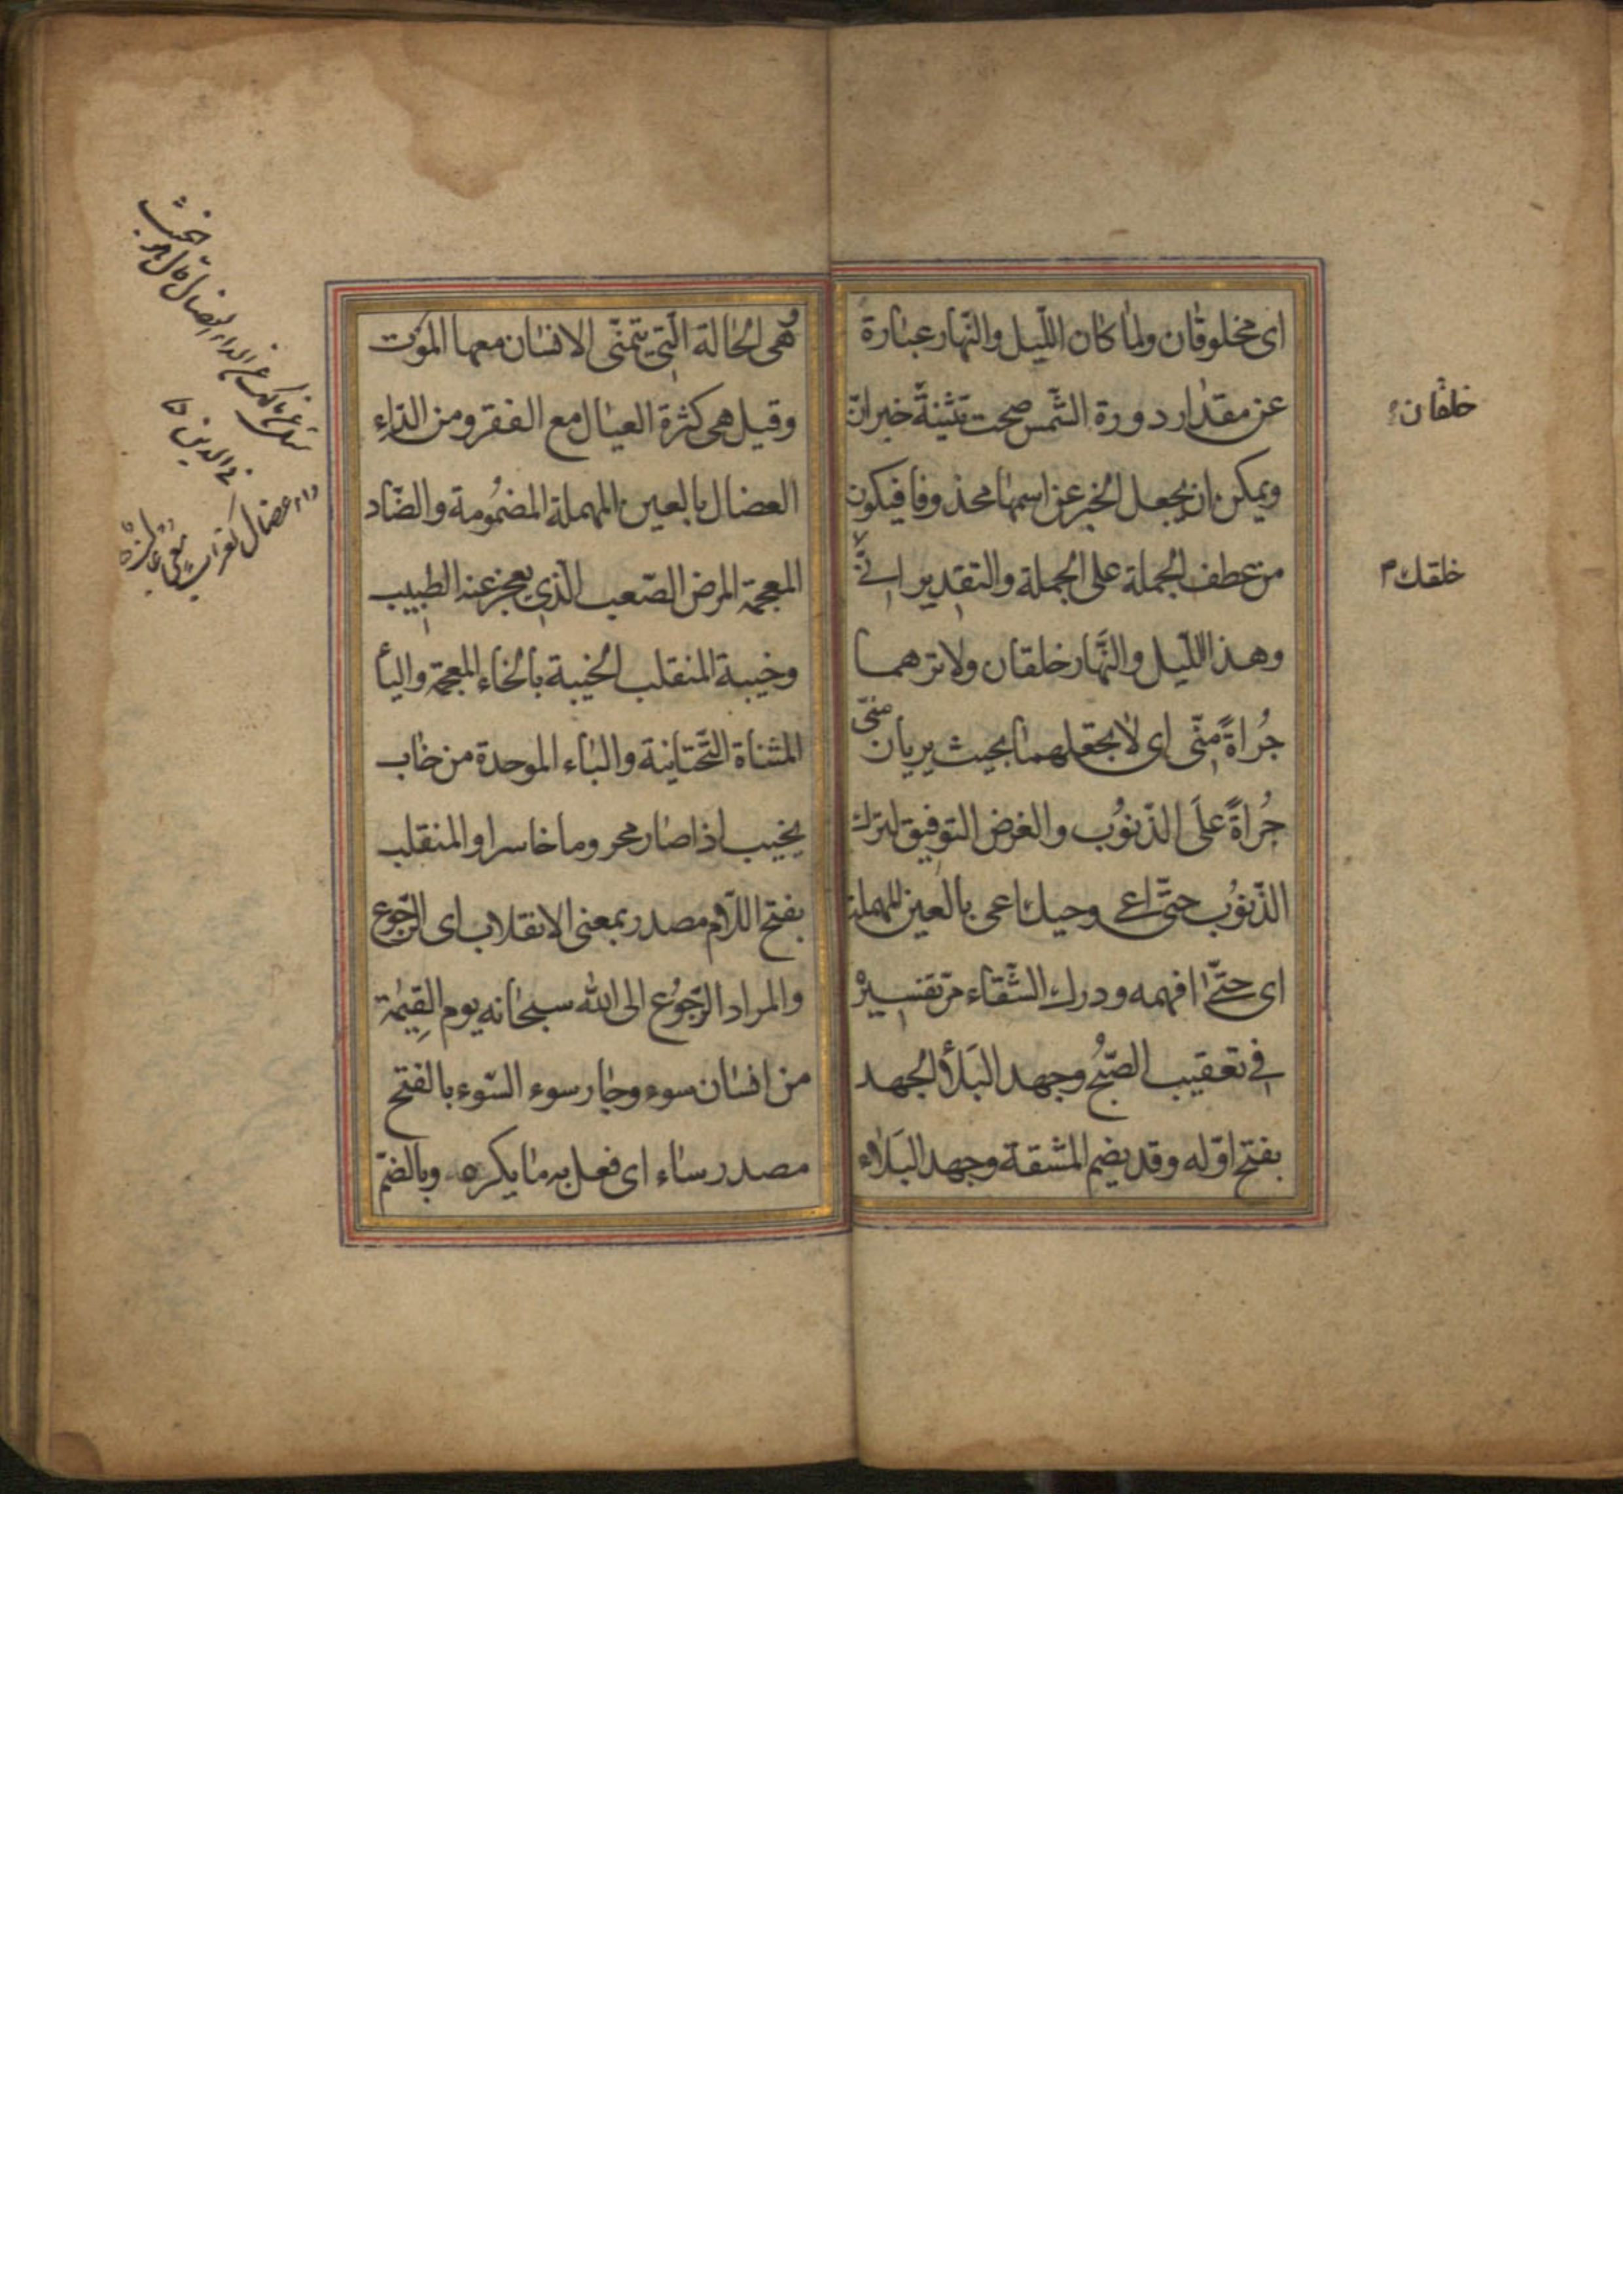 اى مخلوقان ولما كان الليل والنهار عبارة
عن مقدار دورة الشمس صحت تثنية خبر ان
ويمكن ان يجعل الخبر عن اسمها محذوفا فيكون
من عطف الجملة على الجملة والتقدير انى
وهذا الليل والنهار خلقان ولا ترهما
جُراةً منّى اى لا تجعلهما بحيث يريان منّى
جُراةً علَى الذّنوُب والغرض التوفيق لترك
الذّنوُب حتّى اعى وحيك اعى بالعين المهملة
اى حتّى افهمه ودرك الشّقاء مرّ تفسيره
فى تعقيب الصّبُح وجهد البَلأ الجهد
بفتح اوّله وقد يضم المشقة وجهد البَلاء
خلقان
خلقك
هى الحالة الّتى يتمنّى الانسان معها الموت
وقيل هى كثرة العيال مع الفقر ومن الداء
العضال بالعين المهملة المضمُومة والضّاد
المعجمة المرض الصّعب الّذى يعجز عنه الطبيب
وخيبة المنقلب الخيبة بالخاء المعجمة واليأ
المثناة التّحتانية والباء الموحدة من خاب
يخيب اذا صار محروما خاسرا والمنقلب
بفتح اللّام مصدر بمعنى الانقلاب اى الرّجوع
والمراد الرّجوُع الى الله سبحانه يوم القِيٰمة
من انسان سوء وجار سوء السّوء بالفتح
مصدر ساء اى فعل به ما يكره وبالضمّ
فى الدين
داء عضال كغراب